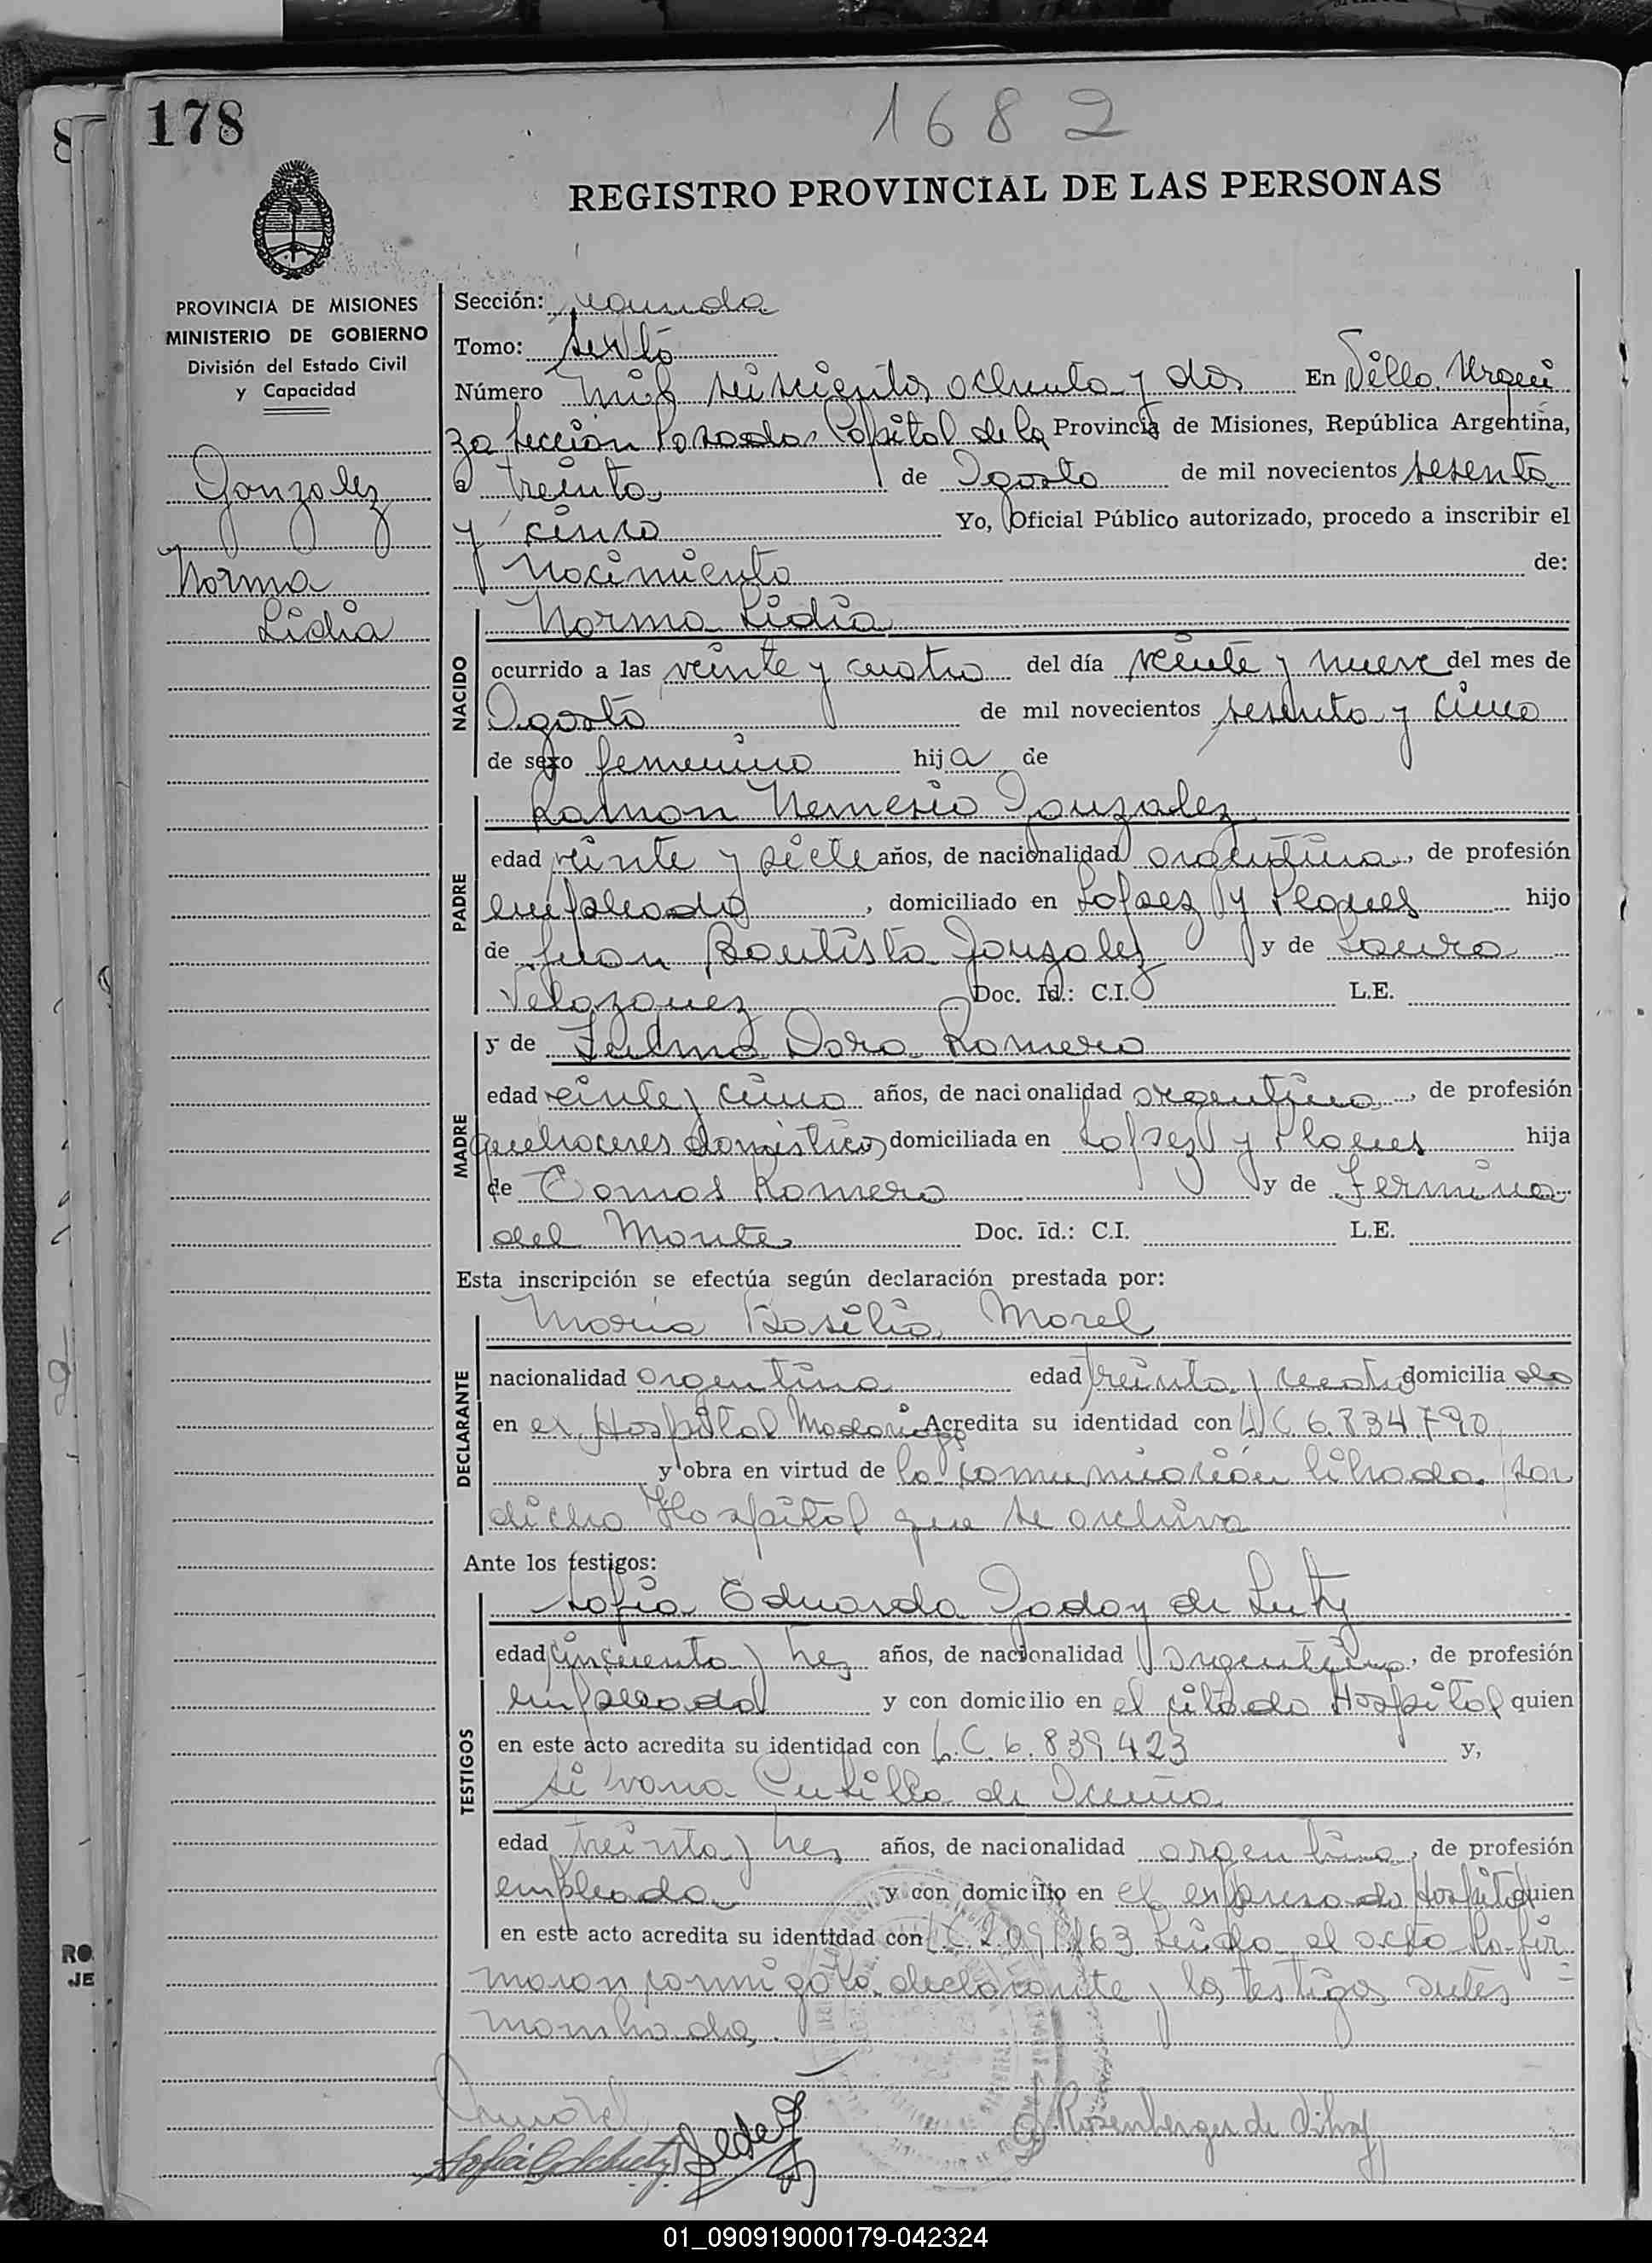 178
1682
REGISTRO PROVINCIAL DE LAS PERSONAS
PROVINCIA DE MISIONES
MINISTERIO DE GOBIERNO
División del Estado Civil
y Capacidad
Gonzalez
Norma
Lidia
Sección: segunda
Tomo: sexto
Número mil seiscientos ochenta y dos En Villa Urqui
za Sección Posadas Capital de la Provincia de Misiones, República Argentina,
a treinta de Agosto de mil novecientos sesenta
y cinco Yo, Oficial Público autorizado, procedo a inscribir el
Nacimiento de:
NACIDO
Norma Lidia
ocurrido a las veinte y cuatro del día veinte y nueve del mes de
Agosto de mil novecientos sesenta y cinco
de sexo femenino hija de
PADRE
Ramon Nemesio Gonzalez
edad veinte y siete años, de nacionalidad argentina, de profesión
empleado, domiciliado en Lopez y Planes hijo
de Juan Bautista Gonzalez y de Laura
Velazquez Doc. Id.: C.I. L.E.
MADRE
y de Zulma Dora Romero
edad veinte y cinco años, de nacionalidad argentina, de profesión
quehaceres domésticos domiciliada en Lopez y Planes hija
de Tomas Romero y de Fermina
del Monte Doc. Id.: C.I. L.E.
Esta inscripción se efectúa según declaración prestada por:
DECLARANTE
Maria Basilia Morel
nacionalidad argentina edad treinta y cuatro domiciliada
en el Hospital Madariaga Acredita su identidad con L.C. 6.834.790
y obra en virtud de la comunicación librada por
dicho Hospital que se archiva
Ante los testigos:
TESTIGOS
Sofia Eduarda Godoy de Luty
edad cincuenta y tres años, de nacionalidad argentina, de profesión
empleada y con domicilio en el citado Hospital quien
en este acto acredita su identidad con L.C. 6.839.423 y,
Silvana de Acuña
edad treinta y tres años, de nacionalidad argentina, de profesión
empleada y con domicilio en el expresado Hospital quien
en este acto acredita su identidad con L.C. Leida el acta la fir
maron conmigo la declarante y los testigos antes
mombrados.
Morel
G. Rosenberger de Silva
01_090919000179-042324